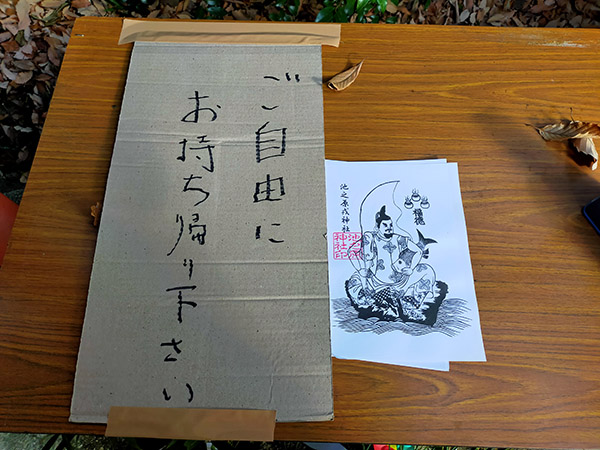 ご自由に
お持ち帰り下さい
池之原戎神社